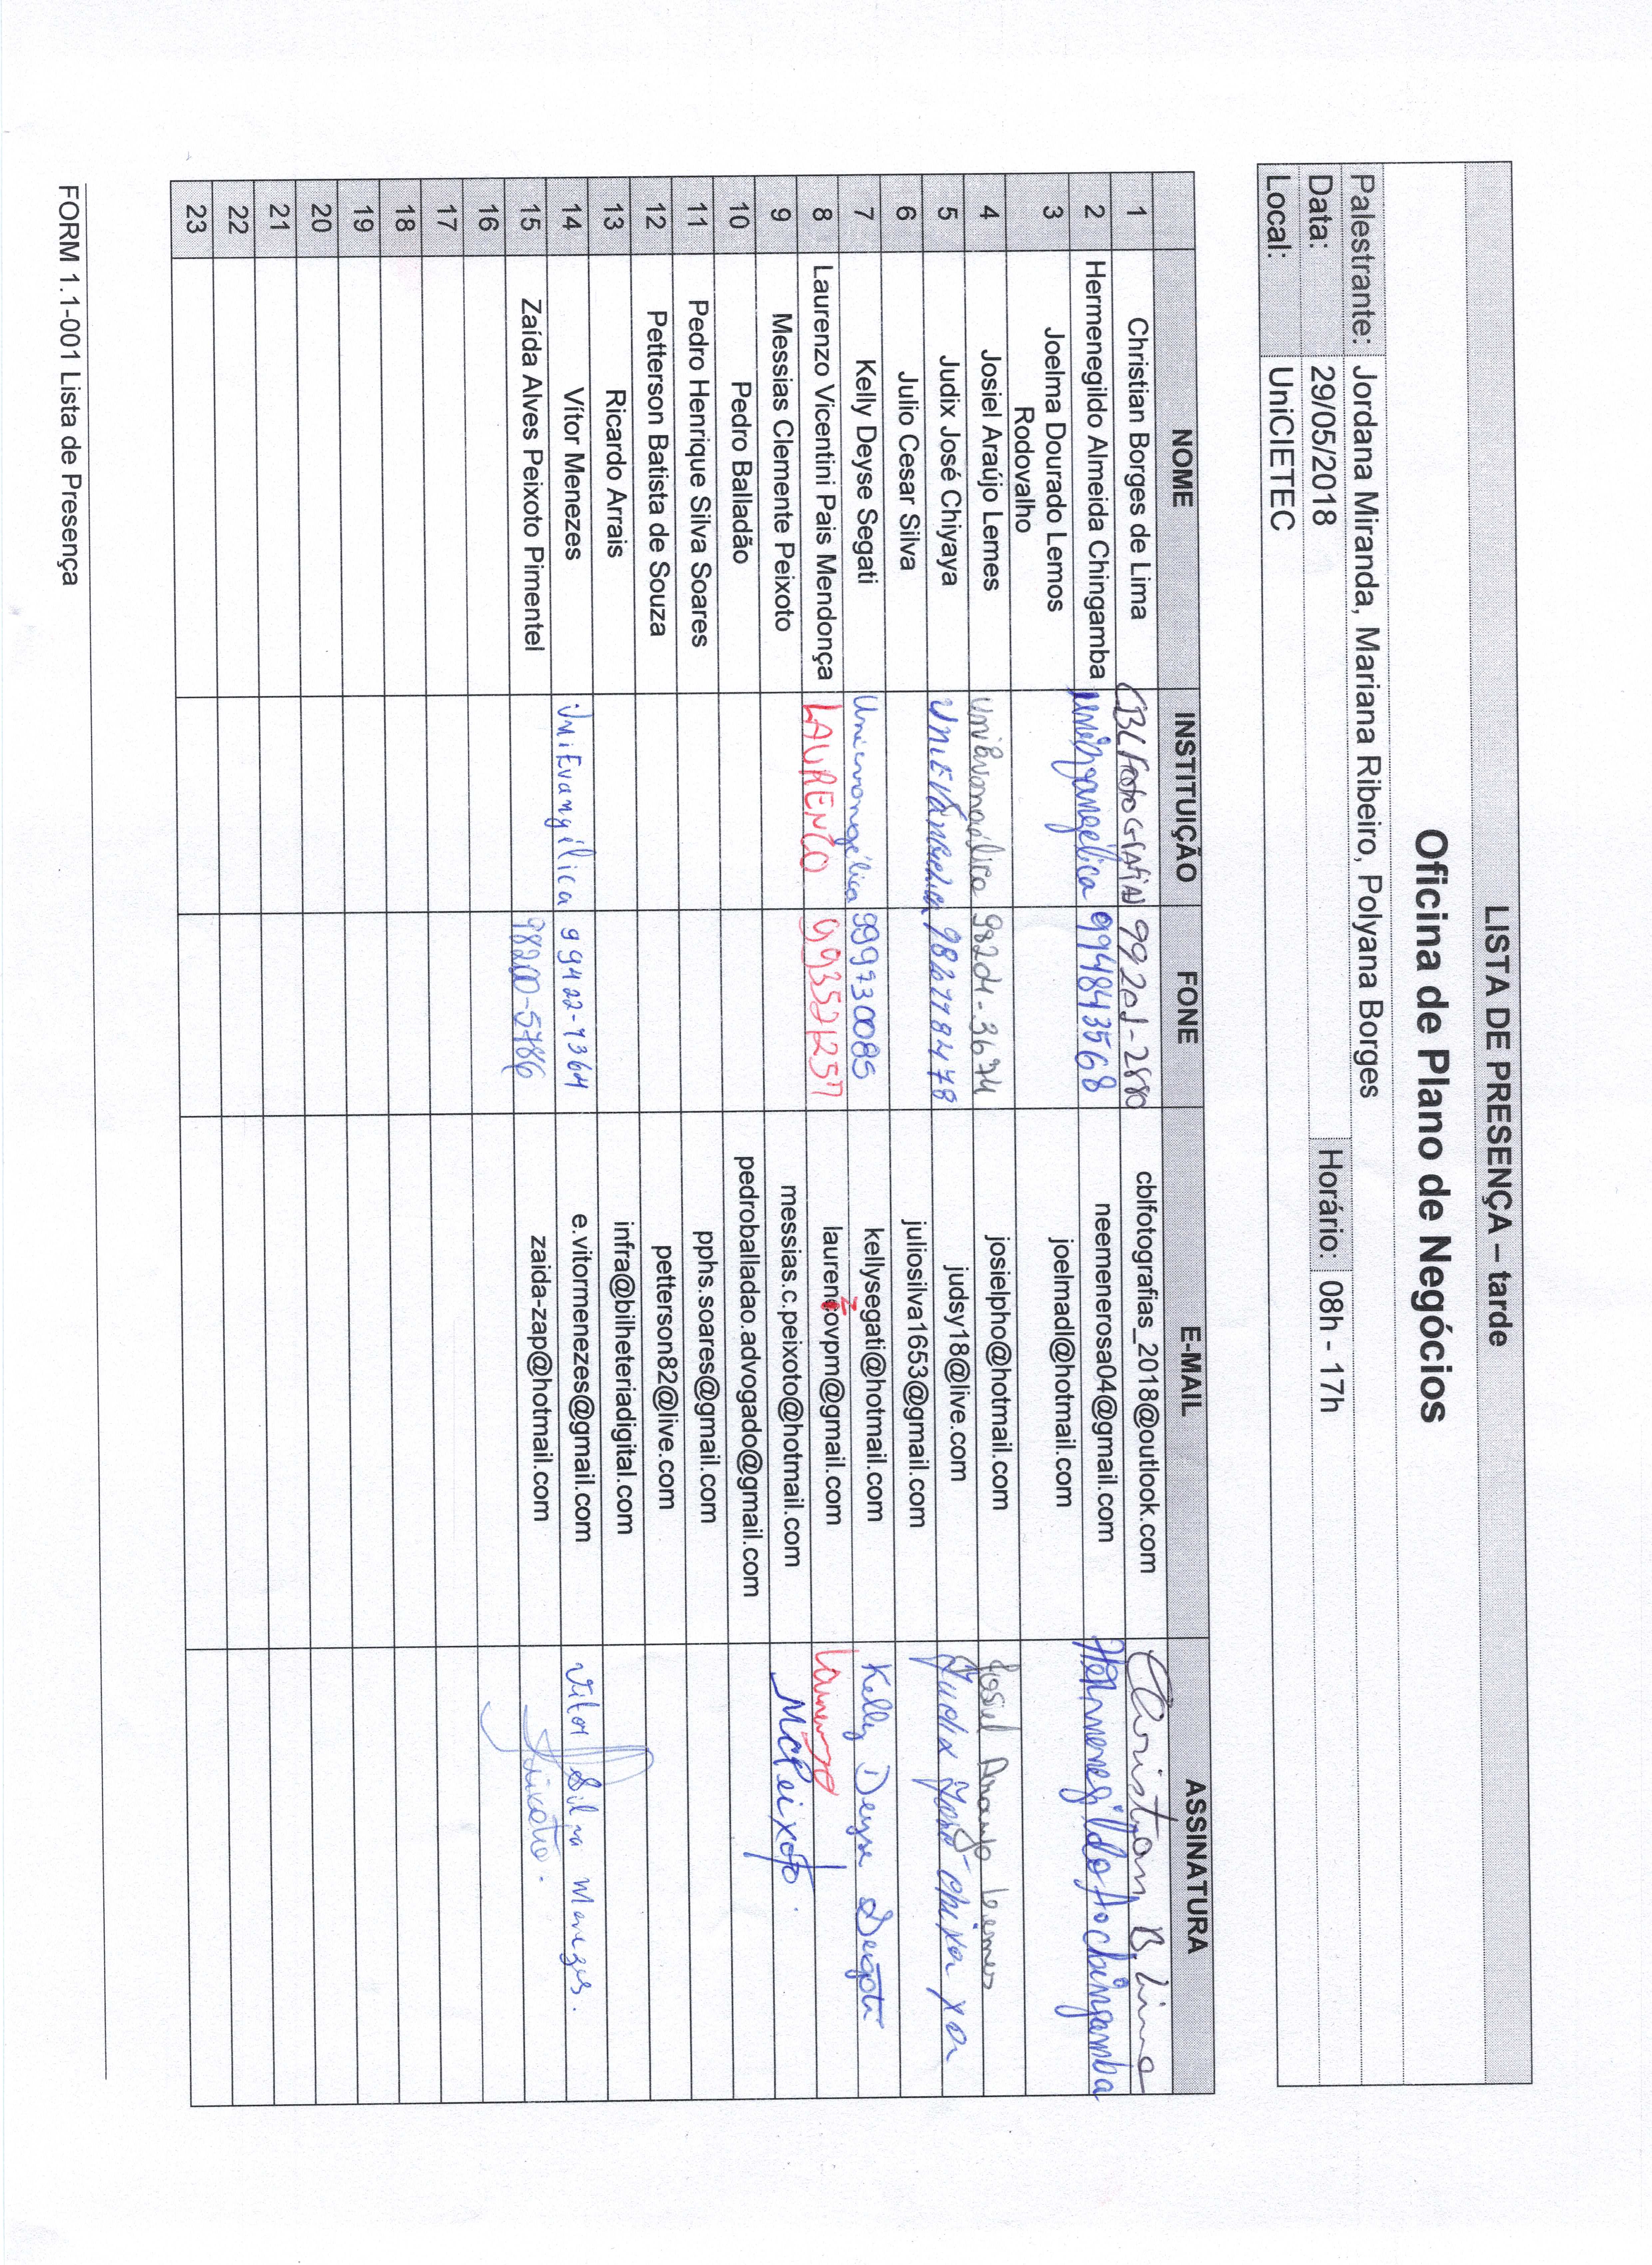 LISTA DE PRESENÇA – tarde
Oficina de Plano de Negócios
Palestrante: Jordana Miranda, Mariana Ribeiro, Polyana Borges
Data: 29/05/2018 Horário: 08h - 17h
Local: UniCIETEC
NOME INSTITUIÇÃO FONE E-MAIL ASSINATURA
1 Christian Borges de Lima CBL FotoGRAFIA 99201-2880 cblfotografias_2018@outlook.com Christian B. Lima
2 Hermenegildo Almeida Chingamba Unievangelica 994843568 neemenerosa04@gmail.com Hermenegildo Ao chingamba
3 Joelma Dourado Lemos joelmadl@hotmail.com
Rodovalho
4 Josiel Araújo Lemes UniEvangélica josielpho@hotmail.com Josiel Araujo Lemes
5 Judix José Chiyaya UniEvangelica 982778478 judsy18@live.com Judix José
6 Julio Cesar Silva juliosilva1653@gmail.com
7 Kelly Deyse Segati Unievangélica 999730085 kellysegati@hotmail.com Kelly Deyse Segati
8 Laurenzo Vicentini Pais Mendonça LAURENÇO 993521257 laurenzovpm@gmail.com Laurenzo
9 Messias Clemente Peixoto messias.c.peixoto@hotmail.com MCPeixoto.
10 Pedro Balladão pedroballadao.advogado@gmail.com
11 Pedro Henrique Silva Soares pphs.soares@gmail.com
12 Petterson Batista de Souza petterson82@live.com
13 Ricardo Arrais infra@bilheteriadigital.com
14 Vítor Menezes UniEvangélica 99422-7364 e.vitormenezes@gmail.com Vitor Silva Menezes.
15 Zaída Alves Peixoto Pimentel 98200-5786 zaida-zap@hotmail.com
16
17
18
19
20
21
22
23
FORM 1.1-001 Lista de Presença